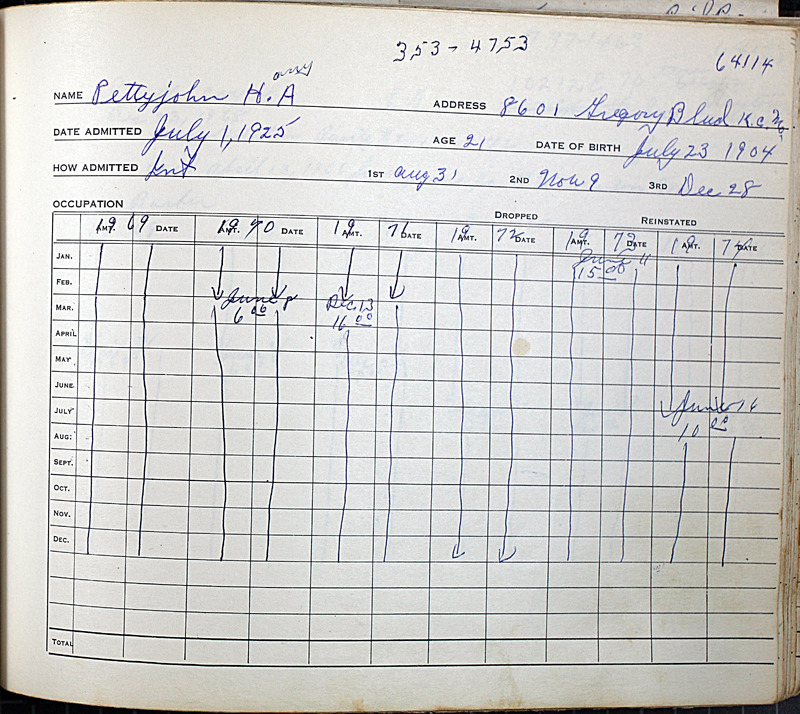 353-4753
64114
NAME Pettyjohn H. A
ADDRESS 8601 Gregory Blvd K.C.
DATE ADMITTED July 1, 1925
AGE 21 DATE OF BIRTH July 23 1904
HOW ADMITTED Int
1ST Aug 31 2ND Nov 9 3RD Dec 28
OCCUPATION
DROPPED REINSTATED
AMT. 1969 DATE AMT. 1970 DATE AMT. 19 71 DATE AMT. 19 72 DATE AMT. 19 73 DATE AMT. 19 74 DATE
JAN. June 11
15 00
FEB.
MAR. June 8 Dec 13
6 00 16 00
APRIL
MAY
JUNE
JULY June
10 00
AUG.
SEPT.
OCT.
NOV.
DEC.
TOTAL